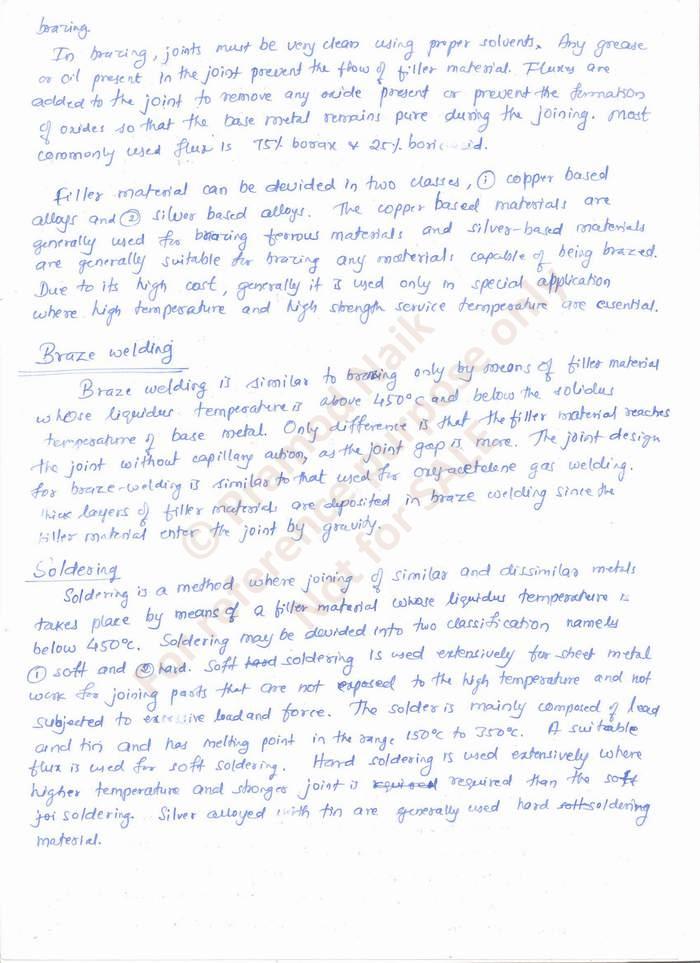 brazing.
In brazing, joints must be very clean using proper solvents. Any grease
or oil present in the joint prevent the flow of filler material. Fluxes are
added to the joint to remove any oxide present or prevent the formation
of oxides so that the base metal remains pure during the joining. Most
commonly used flux is 75% borax & 25% boric acid.
Filler material can be devided in two classes, ① copper based
alloys and ② silver based alloys. The copper based materials are
generally used for brazing ferrous materials and silver-based materials
are generally suitable for brazing any materials capable of being brazed.
Due to its high cost, generally it is used only in special application
where high temperature and high strength service temperature are essential.
Braze welding
Braze welding is similar to brazing only by means of filler material
whose liquidus temperature is above 450°C and below the solidus
temperature of base metal. Only difference is that the filler material reaches
the joint without capillary action, as the joint gap is more. The joint design
for braze-welding is similar to that used for oxy-acetelene gas welding.
Thick layers of filler materials are deposited in braze welding since the
filler material enter the joint by gravity.
Soldering
Soldering is a method where joining of similar and dissimilar metals
takes place by means of a filler material whose liquidus temperature is
below 450°C. Soldering may be devided into two classification namely
① soft and ② hard. Soft hard soldering is used extensively for sheet metal
work for joining parts that are not exposed to the high temperature and not
subjected to excessive load and force. The solder is mainly composed of lead
and tin and has melting point in the range 150°C to 350°C. A suitable
flux is used for soft soldering. Hard soldering is used extensively where
higher temperature and stronger joint is required than the soft
soldering. Silver alloyed with tin are generally used hard soft soldering
material.
© Pramod Naik
For reference purpose only
Not for SALE